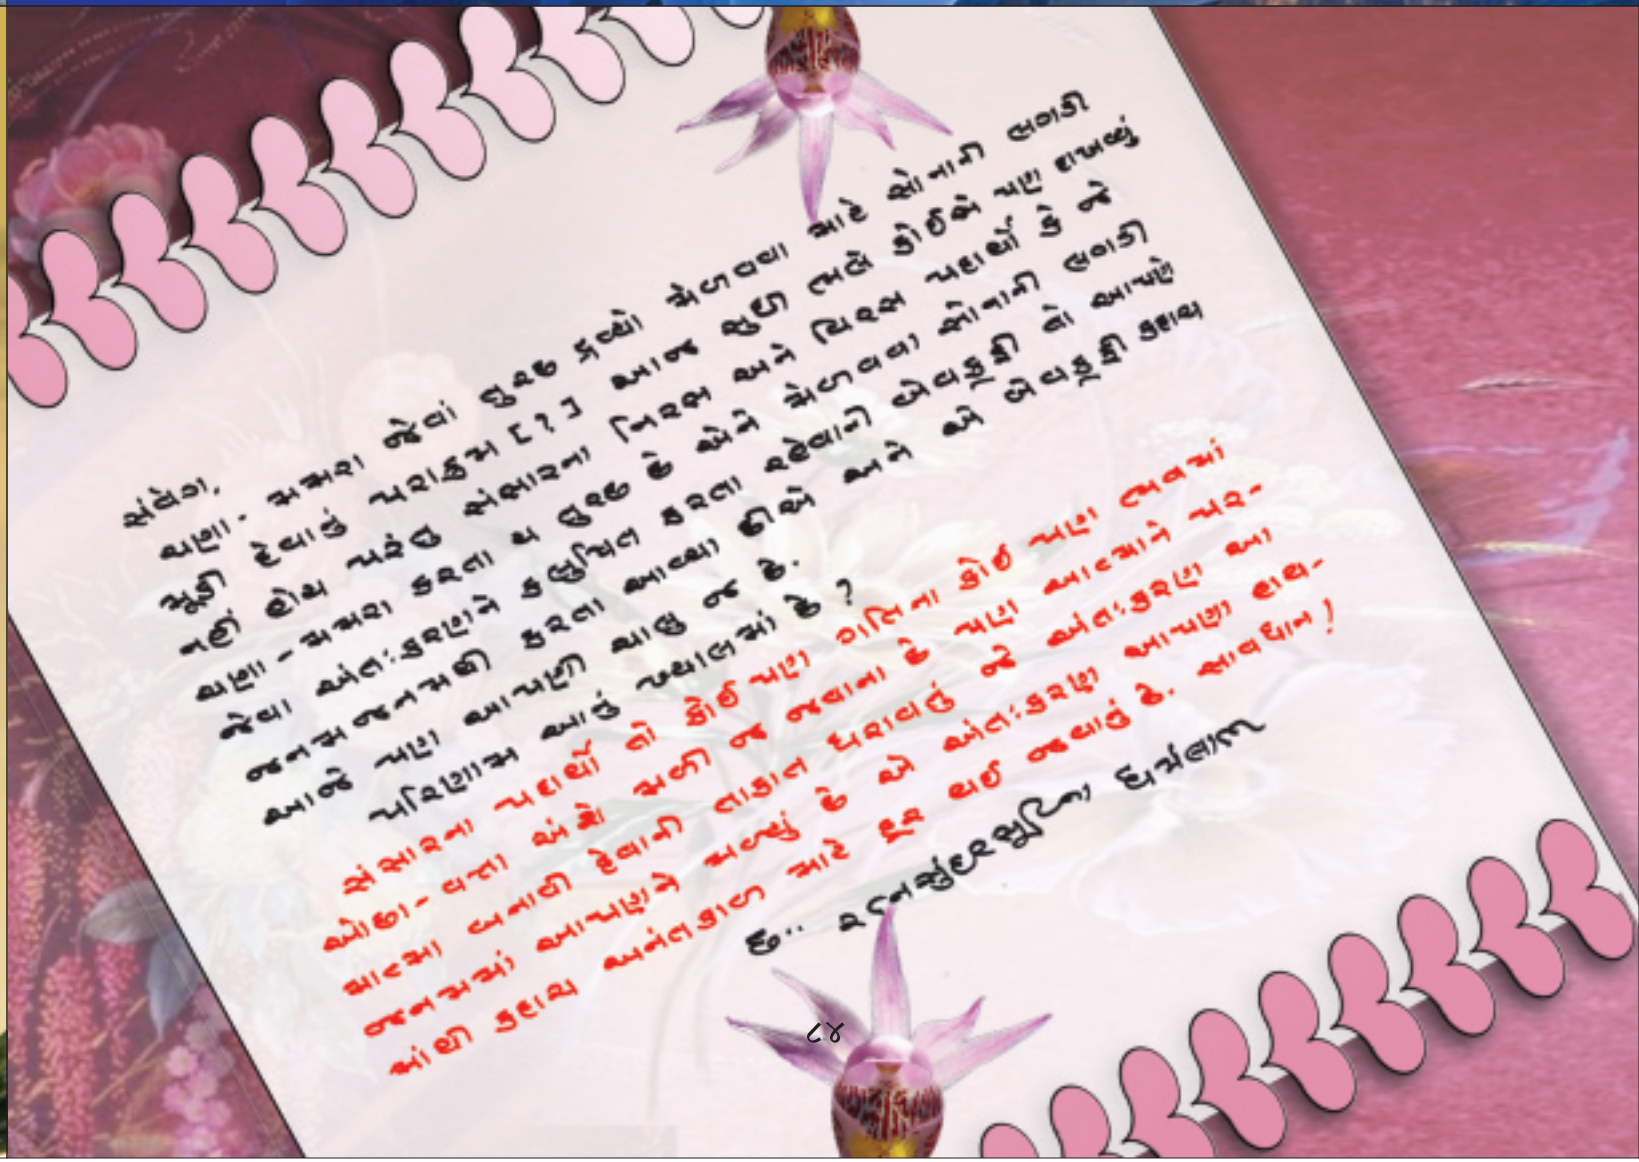 સંવેગ,
ચણા - મમરા જેવાં તુચ્છ દ્રવ્યો મેળવવા માટે સોનાની લગડી
મૂકી દેવાનું પરાક્રમ [?] આજ સુધી ભલે કોઈએ પણ દાખવ્યું
નહીં હોય પરંતુ સંસારના નિરસ અને વિરસ પદાર્થો કે જે
ચણા - મમરા કરતા ય તુચ્છ છે એને મેળવવા સોનાની લગડી
જેવા અંતઃકરણને કલુષિત કરતા રહેવાની બેવકૂફી તો આપણે
જનમ જનમથી કરતા આવ્યા છીએ અને એ બેવકૂફી કદાચ
આજે પણ આપણી ચાલુ જ છે.
પરિણામ આનું ખ્યાલમાં છે ?
સંસારના પદાર્થો તો કોઈ પણ ગતિના કોઈ પણ ભવમાં
ઓછા - વત્તા અંશે મળી જ જવાના છે પણ આત્માને પર-
માત્મા બનાવી દેવાની તાકાત ધરાવતું જે અંતઃકરણ આ
જનમમાં આપણને મળ્યું છે એ અંતઃકરણ આપણા હાથ-
માંથી કદાચ અનંતકાળ માટે દૂર થઈ જવાનું છે. સાવધાન !
દ.. રત્નસુંદરસૂરિના ધર્મલાભ
૮૪